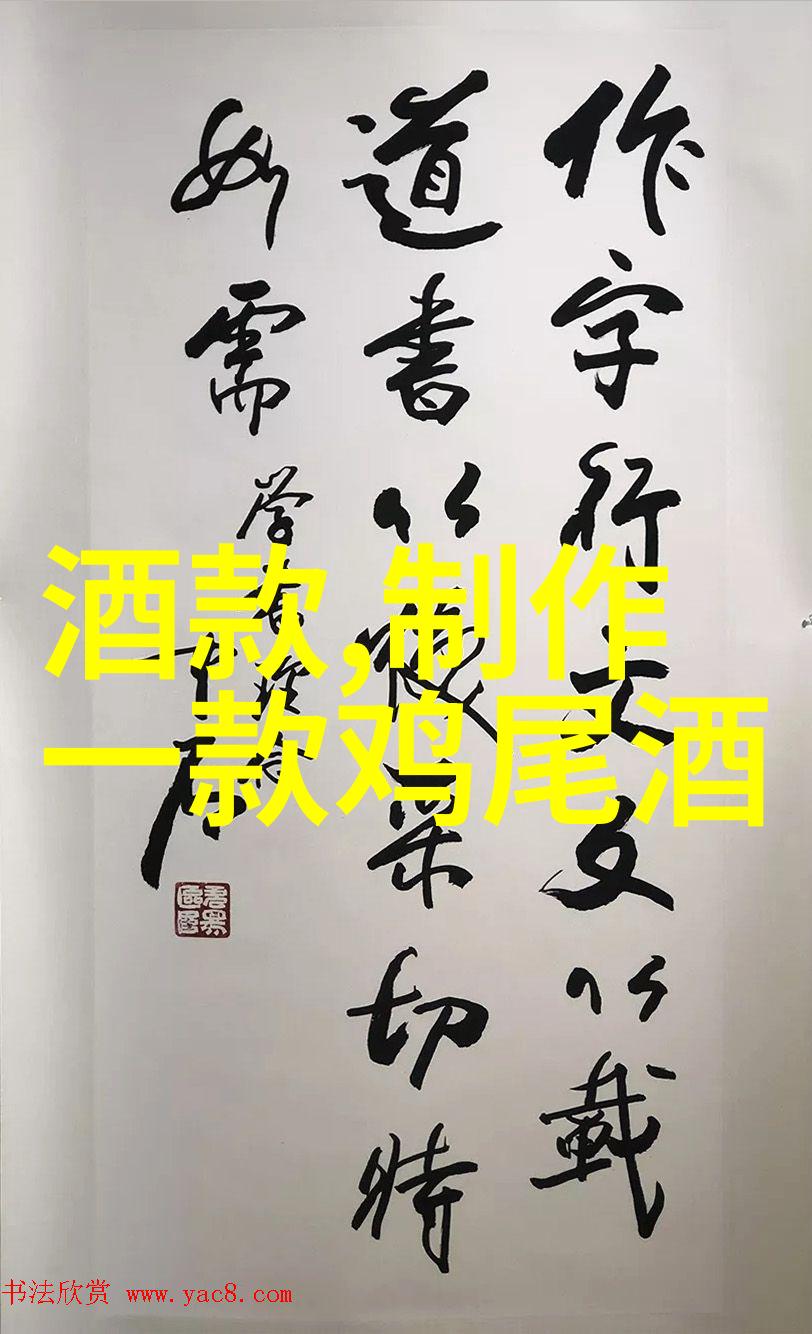 作字行文文以載
道書以懷采切時
如需
酒款,制作
一款鸡尾酒
书法欣赏 www.yac8.com